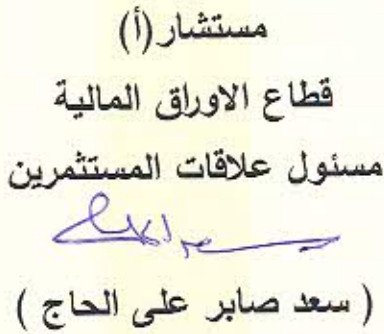 مستشار (أ)
قطاع الاوراق المالية
مسئول علاقات المستثمرين
( سعد صابر على الحاج )